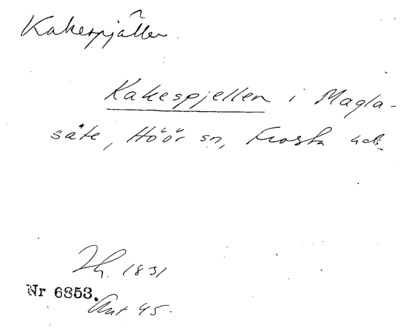 Kakespjällen
Kakespjellen i Magla-
säte, Höör sn, Frosta hd.
Zh. 1831
Nr 6853.
Ant 45.